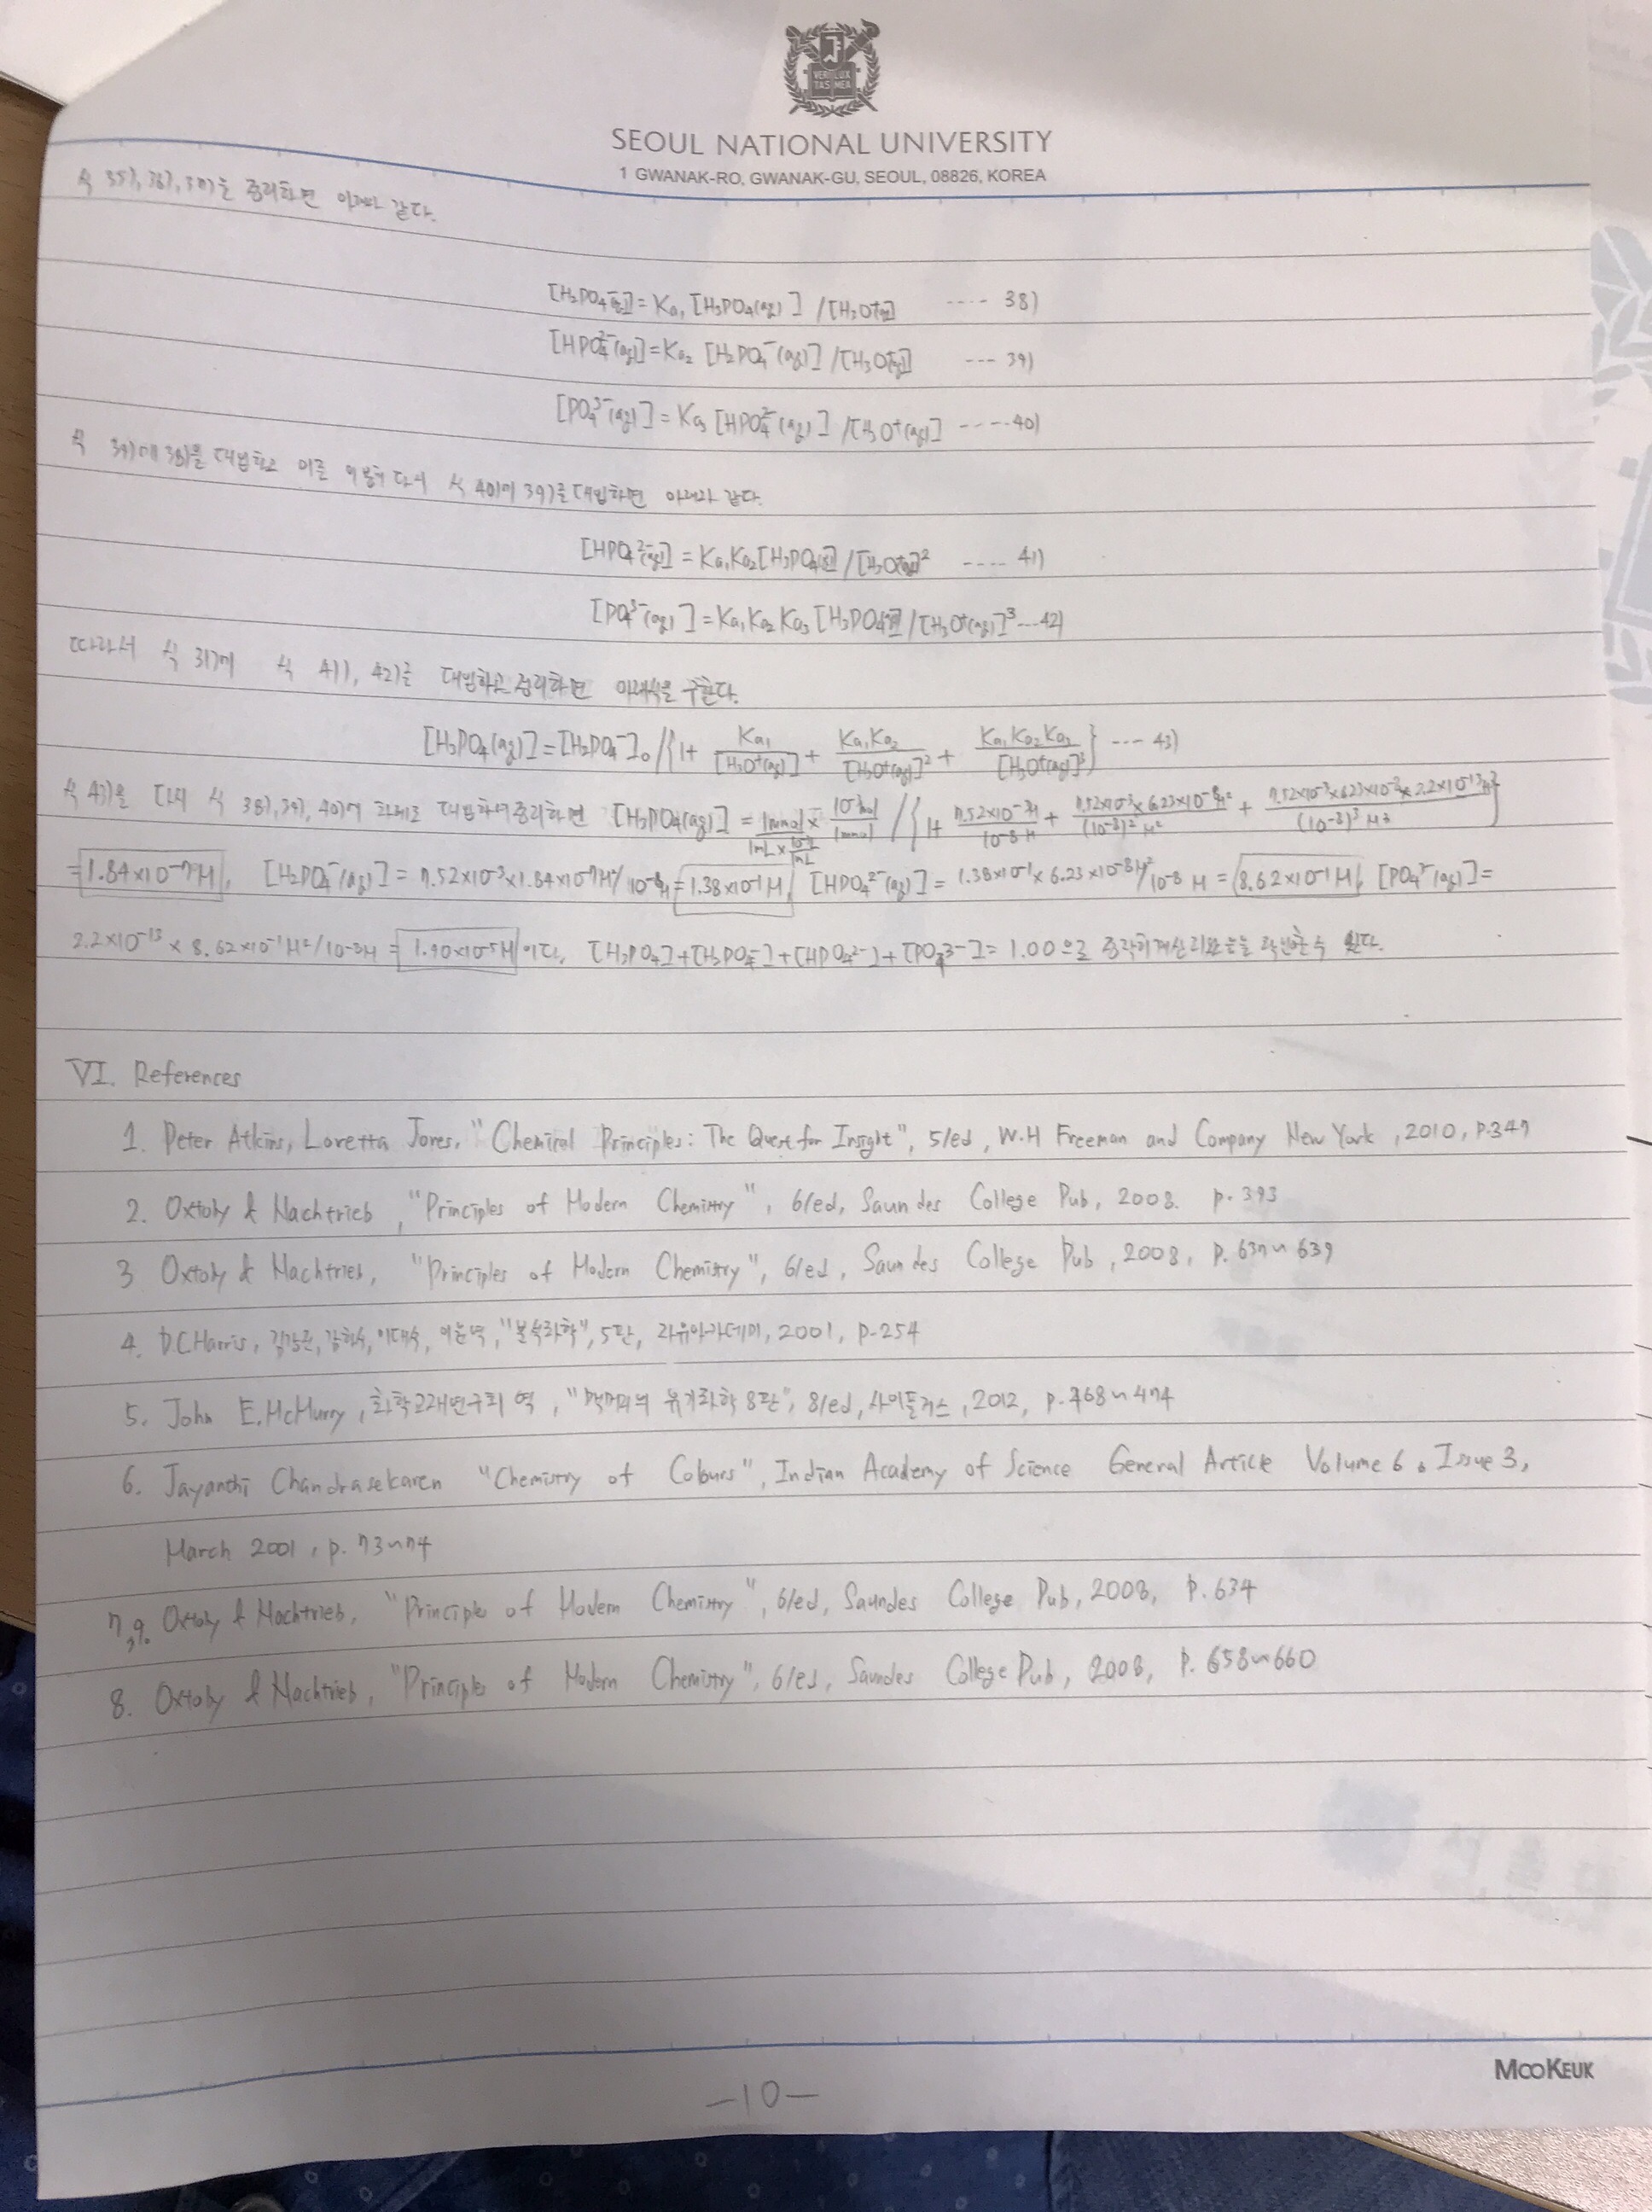 VERI LUX
TAS MEA
SEOUL NATIONAL UNIVERSITY
1 GWANAK-RO, GWANAK-GU, SEOUL, 08826, KOREA
식 35), 36), 37)을 정리하면 아래와 같다.
[H₂PO₄⁻(aq)] = Ka₁ [H₃PO₄(aq)] / [H₃O⁺(aq)] ---- 38)
[HPO₄²⁻(aq)] = Ka₂ [H₂PO₄⁻(aq)] / [H₃O⁺(aq)] --- 39)
[PO₄³⁻(aq)] = Ka₃ [HPO₄²⁻(aq)] / [H₃O⁺(aq)] ----40)
식 39)에 38)을 대입하고 이를 이용해 다시 식 40)에 39)를 대입하면 아래와 같다.
[HPO₄²⁻(aq)] = Ka₁Ka₂[H₃PO₄(aq)] / [H₃O⁺(aq)]² ---- 41)
[PO₄³⁻(aq)] = Ka₁Ka₂Ka₃ [H₃PO₄(aq)] / [H₃O⁺(aq)]³ ---42)
따라서 식 37)에 식 41), 42)를 대입하고 정리하면 아래식을 구한다.
[H₃PO₄(aq)] = [H₂PO₄⁻]₀ / {1 + Ka₁/[H₃O⁺(aq)] + Ka₁Ka₂/[H₃O⁺(aq)]² + Ka₁Ka₂Ka₃/[H₃O⁺(aq)]³} ---- 43)
식 43)을 다시 식 38), 39), 40)에 차례로 대입하여 정리하면 [H₃PO₄(aq)] = 1mmol/1mL × 10⁻³mol/1mmol / {1 + 7.52×10⁻³M/10⁻⁸M + 7.52×10⁻³×6.23×10⁻⁸M²/(10⁻⁸)²M² + 7.52×10⁻³×6.23×10⁻⁸×2.2×10⁻¹³M³/(10⁻⁸)³M³}
= 1.84×10⁻⁷M, [H₂PO₄⁻(aq)] = 7.52×10⁻³×1.84×10⁻⁷M²/10⁻⁸M = 1.38×10⁻¹M, [HPO₄²⁻(aq)] = 1.38×10⁻¹×6.23×10⁻⁸M²/10⁻⁸M = 8.62×10⁻¹M, [PO₄³⁻(aq)] =
2.2×10⁻¹³ × 8.62×10⁻¹M²/10⁻⁸M = 1.90×10⁻⁵M 이다. [H₃PO₄]+[H₂PO₄⁻]+[HPO₄²⁻]+[PO₄³⁻] = 1.00으로 정확히 계산되었음을 확인할 수 있다.
VI. References
1. Peter Atkins, Loretta Jones, "Chemical Principles: The Quest for Insight", 5/ed, W.H Freeman and Company New York, 2010, p.347
2. Oxtoby & Nachtrieb, "Principles of Modern Chemistry", 6/ed, Saundes College Pub, 2008. p. 393
3 Oxtoby & Nachtrieb, "Principles of Modern Chemistry", 6/ed, Saundes College Pub, 2008, p. 637~639
4. D.C.Harris, 이대운, "분석화학", 5판, 자유아카데미, 2001, p.254
5. John E.McMurry, 화학교재연구회 역, "맥머리의 유기화학 8판", 8/ed, 사이플러스, 2012, p.468~474
6. Jayanthi Chandrasekaren "Chemistry of Colours", Indian Academy of Science General Article Volume 6, Issue 3,
March 2001, p. 73~74
7,9. Oxtoby & Nachtrieb, "Principles of Modern Chemistry", 6/ed, Saundes College Pub, 2008, p. 634
8. Oxtoby & Nachtrieb, "Principles of Modern Chemistry", 6/ed, Saundes College Pub, 2008, p. 658~660
MOOKEUK
-10-